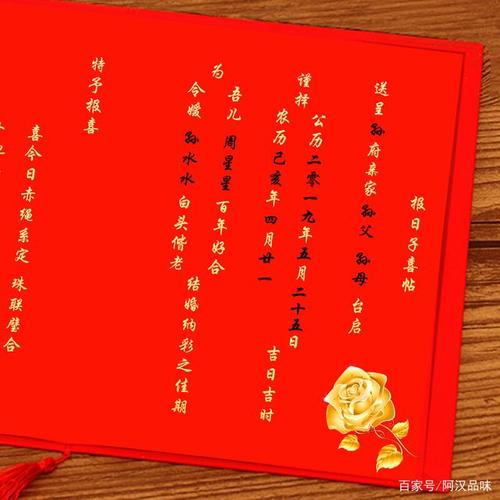 报日子喜帖
送呈 孙 府亲家 孙父 孙母 台启
谨择
公历二零一九年五月二十五日
农历己亥年四月廿一 吉日吉时
为
吾儿 周星星 百年好合
令媛 孙水水 白头偕老 结婚纳彩之佳期
特予报喜
喜今日赤绳系定 珠联璧合
百家号/阿汉品味